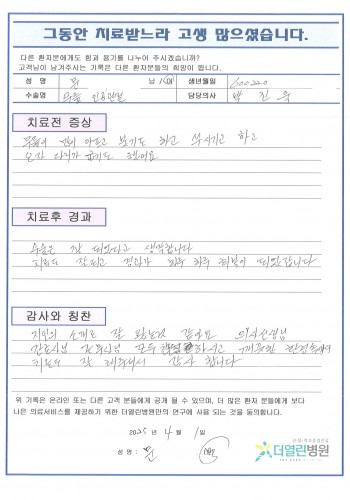 그동안 치료받느라 고생 많으셨습니다.
다른 환자분에게도 힘과 용기를 나누어 주시겠습니까?
고객님이 남겨주시는 기록은 다른 환자분들의 희망이 됩니다.
성 명 문 님 생년월일 600220
수술명 무릎 인공관절 담당의사 박진욱
치료전 증상
무릎이 많이 아프고 붓기도 하고 쑤시기도 하고
오자 다리가 굽기도 했어요
치료후 경과
수술은 잘 되었다고 생각합니다
치료도 잘되고 경과가 하루 하루 회복이 되었습니다
감사와 칭찬
지인의 소개로 잘 왔는것 같아요 의사선생님
간호사님 모두 친절하시고 깨끗한 환경속에서
치료도 잘 해주셔서 감사 합니다
위 기록은 온라인 또는 다른 고객 분들에게 공개 될 수 있으며, 더 많은 환자 분들에게 보다
나은 의료서비스를 제공하기 위한 더열린병원만의 연구에 사용 되는 것을 동의합니다.
2025 년 4 월 1 일
성 명 : 문
더열린병원